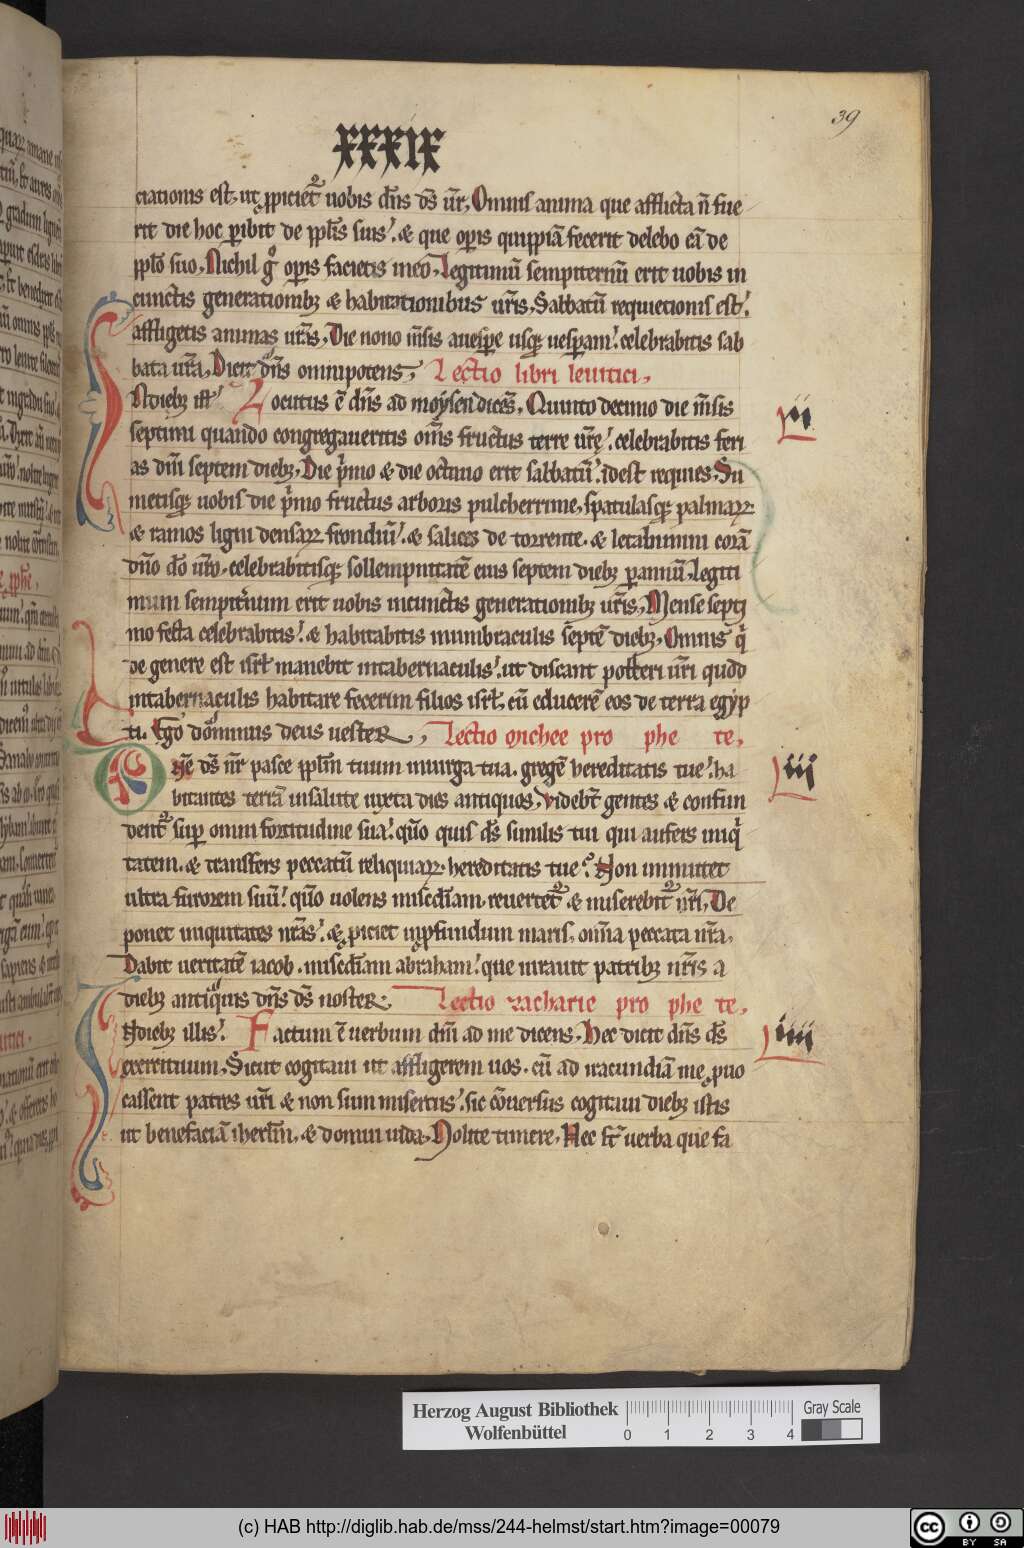 39
xxxix
ciationis est, ut ꝓpiciet᷑ uobis dn̄s ds̄ ur̄, Omnis anima que afflicta n̄ fue
rit die hoc ꝑibit de ppl̄is suis. & que oꝑis quippiā fecerit delebo eā de
ppl̄o suo, Nichil gͦ oꝑis facietis in eo, Legitimū sempiternū erit uobis in
cunctis generationibꝫ & habitationibus ur̄is, Sabbatū requietionis est.
affligetis animas ur̄as, Die nono m̄sis auesꝑe usqꝫ uesꝑam. celebrabitis sab
bata ur̄a, Dicit dn̄s omnipotens, Lectio libri leuitici,
Ndiebꝫ ill᷑ Locutus ē dn̄s ad moysen dicēs, Quinto decimo die m̄sis
septimi quando congregaueritis om̄s fructus terre ur̄ę. celebrabitis feri
as dn̄i septem diebꝫ, Die p̄mo & die octauo erit sabbatū. idest requies, Su
metisqꝫ uobis die p̄mo fructus arboris pulcherrime, spatulasqꝫ palmaꝝ
& ramos ligni densaꝝ frondiū. & salices de torrente. & letabimini corā
dn̄o dō ur̄o. celebrabitisqꝫ sollempnitatē eius septem diebꝫ ꝑannū, Legiti
mum sempit̄num erit uobis incunctis generationibꝫ ur̄is, Mense septi
mo festa celebrabitis. & habitabitis inumbraculis septē diebꝫ, Omnis q̄
de genere est isrl̄ manebit intabernaculis. ut discant post̄eri ur̄i quod
intabernaculis habitare fecerim filios isrl̄. cū educerē eos de terra egyp
ti. Ego dominus deus uester, Lectio michee pro phe te,
One ds̄ nr̄ pasce ppl̄m tuum inuirga tua. gregē hereditatis tue. ha
bitantes terrā insaltu iuxta dies antiquos, Videbt̄ gentes & confun
dent᷑ suꝑ omni fortitudine sua. quo quis ds̄ similis tui qui aufers iniq̄
tatem. & transfers peccatū reliquiaꝝ hereditatis tue. Non inmittet
ultra furorem suū. quō uolens misc̄diam. reuertet᷑ & miserebit᷑ nr̄i, De
ponet iniquitates nr̄as. & ꝓiciet inꝓfundum maris, omīa peccata nr̄a,
Dabit ueritatē iacob. misc̄diam abraham. que iurauit patribꝫ nr̄is a
diebꝫ antiquis dn̄s ds̄ noster. Lectio zacharie pro phe te,
Ndiebꝫ illis. Factum ē uerbum dn̄i ad me dicens, Hec dicit dn̄s ds̄
exercituum, Sicut cogitaui ut affligerem uos. cū ad iracundiā me ꝓuo
cassent patres ur̄i & non sum misertus. sic cōuersus cogitaui diebꝫ istis
ut benefaciā iherl̄m, & domui iuda, Nolite timere, Hec st̄ uerba que fa
L ii
L iii
L iiii
Herzog August Bibliothek
Wolfenbüttel
0 1 2 3 4
Gray Scale
(c) HAB http://diglib.hab.de/mss/244-helmst/start.htm?image=00079
cc BY SA